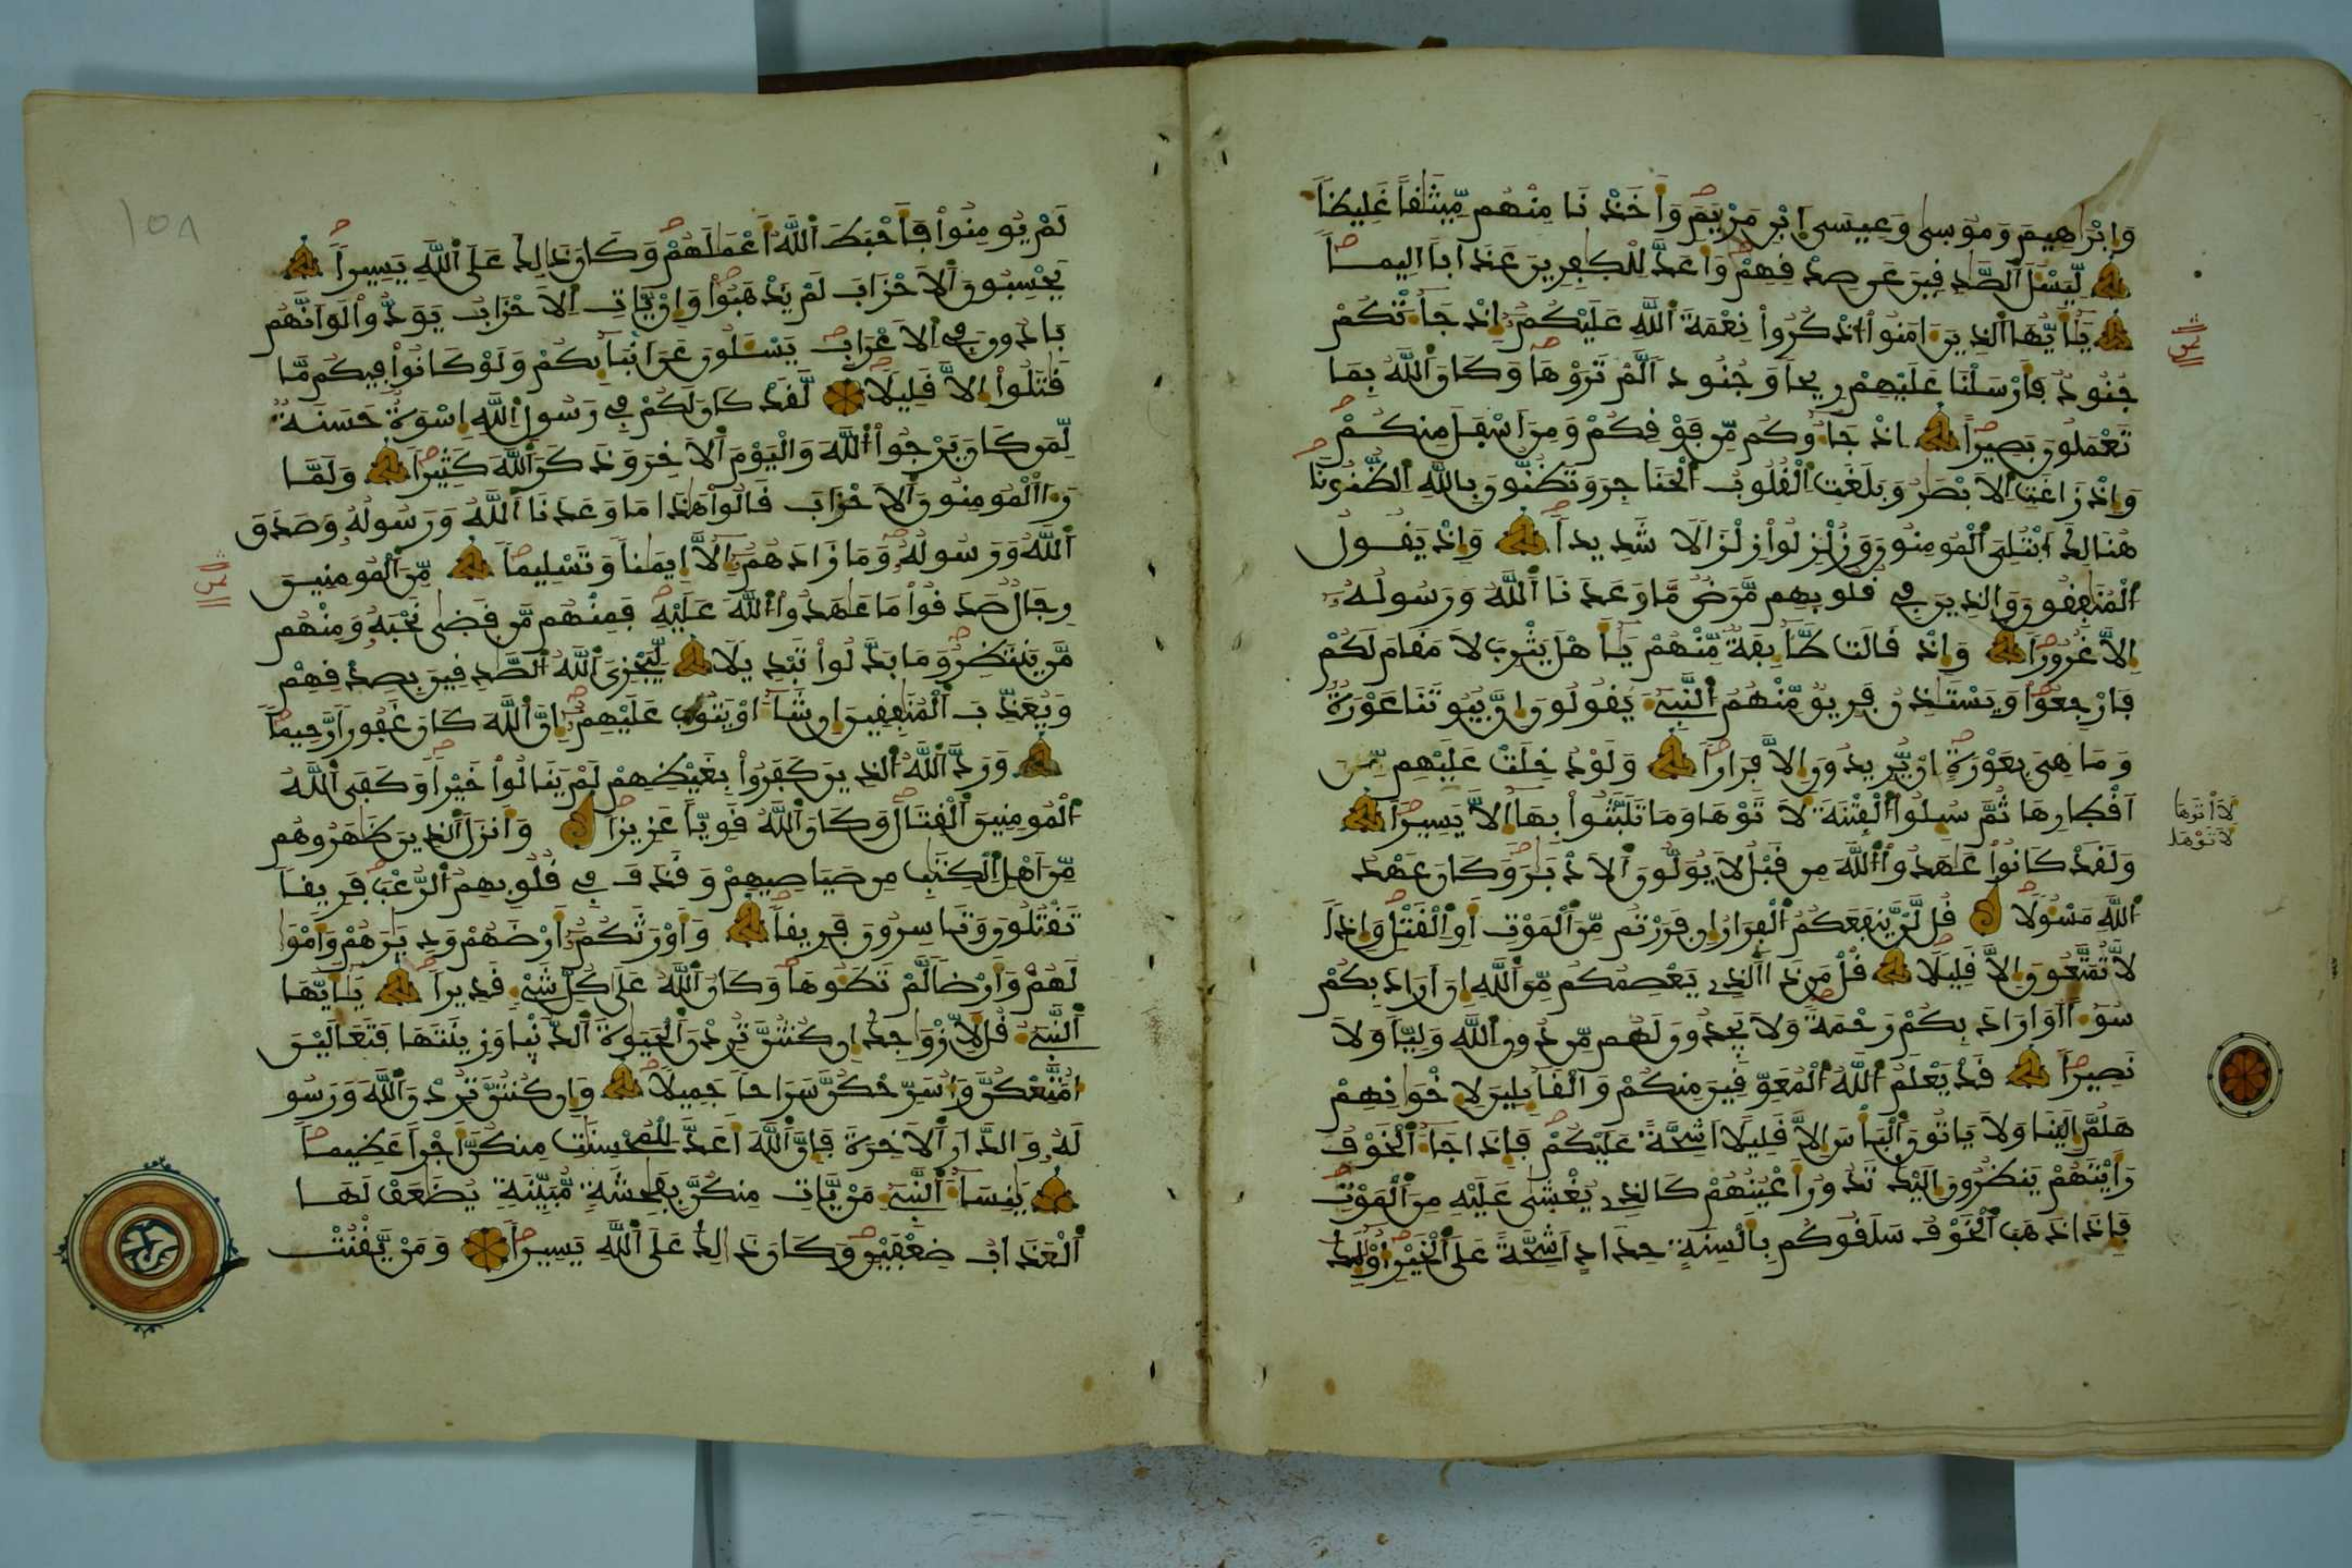 وَإِبْرَٰهِيمَ وَمُوسِىٰ وَعِيسَى اَبْنِ مَرْيَمَ وَأَخَذْنَا مِنْهُم مِّيثَٰقاً غَلِيظاً
لِّيَسْـَٔلَ اَلصَّٰدِقِينَ عَن صِدْقِهِمْ وَأَعَدَّ لِلْكٰفِرِينَ عَذَاباً اَلِيماً
يَٰأَيُّهَا اَلذِينَ ءَامَنُواْ اُذْكُرُواْ نِعْمَةَ اَللَّهِ عَلَيْكُمُۥ إِذْ جَآءَتْكُمْ
جُنُودٌ فَأَرْسَلْنَا عَلَيْهِمْ رِيحاً وَجُنُوداً لَّمْ تَرَوْهَا وَكَانَ اَللَّهُ بِمَا
تَعْمَلُونَ بَصِيراً اِذْ جَآءُوكُم مِّن فَوْقِكُمْ وَمِنَ اَسْفَلَ مِنكُمْ
وَإِذْ زَاغَتِ اِلَابْصَٰرُ وَبَلَغَتِ اِلْقُلُوبُ اُلْحَنَاجِرَ وَتَظُنُّونَ بِاللَّهِ اِلظُّنُونَا
هُنَالِكَ اَبْتُلِىَ اَلْمُومِنُونَ وَزُلْزِلُواْ زِلْزَالاً شَدِيداً وَإِذْ يَقُولُ
اُلْمُنَٰفِقُونَ وَالذِينَ فِى قُلُوبِهِم مَّرَضٌ مَّا وَعَدَنَا اَللَّهُ وَرَسُولُهُۥ
إِلاَّ غُرُوراً وَإِذْ قَالَت طَّآئِفَةٌ مِّنْهُمْ يَٰأَهْلَ يَثْرِبَ لَا مَقَامَ لَكُمْ
فَارْجِعُواْ وَيَسْتَٰذِنُ فَرِيقٌ مِّنْهُمُ اُلنَّبِىٓءَ يَقُولُونَ إِنَّ بُيُوتَنَا عَوْرَةٌ
وَمَا هِىَ بِعَوْرَةٍ اِنْ يُّرِيدُونَ إِلاَّ فِرَاراً وَلَوْ دُخِلَتْ عَلَيْهِم مِّنَ
اَقْطَارِهَا ثُمَّ سُئِلُواْ اُلْفِتْنَةَ لَأَتَوْهَا وَمَا تَلَبَّثُواْ بِهَا إِلاَّ يَسِيراً
وَلَقَدْ كَانُواْ عَٰهَدُواْ اُللَّهَ مِن قَبْلُ لَا يُوَلُّونَ اَلَادْبَٰرَ وَكَانَ عَهْدُ
اُللَّهِ مَسْـُٔولاً قُل لَّنْ يَّنفَعَكُمُ اُلْفِرَارُ إِن فَرَرْتُم مِّنَ اَلْمَوْتِ أَوِ اِلْقَتْلِ وَإِذاً
لاَّ تُمَتَّعُونَ إِلاَّ قَلِيلاً قُلْ مَن ذَا اَلذِى يَعْصِمُكُم مِّنَ اَللَّهِ إِنَ اَرَادَ بِكُمْ
سُوٓءاً اَوَ اَرَادَ بِكُمْ رَحْمَةً وَلَا يَجِدُونَ لَهُم مِّن دُونِ اِللَّهِ وَلِيّاً وَلَا
نَصِيراً قَدْ يَعْلَمُ اُللَّهُ اُلْمُعَوِّقِينَ مِنكُمْ وَالْقَآئِلِينَ لِإِخْوَٰنِهِمْ
هَلُمَّ إِلَيْنَا وَلَا يَاتُونَ اَلْبَأْسَ إِلاَّ قَلِيلاً اَشِحَّةً عَلَيْكُمْ فَإِذَا جَآءَ اَلْخَوْفُ
رَأَيْتَهُمْ يَنظُرُونَ إِلَيْكَ تَدُورُ أَعْيُنُهُمْ كَالذِى يُغْشَىٰ عَلَيْهِ مِنَ اَلْمَوْتِ
فَإِذَا ذَهَبَ اَلْخَوْفُ سَلَقُوكُم بِأَلْسِنَةٍ حِدَادٍ اَشِحَّةً عَلَى اَلْخَيْرِ أُوْلَٰئِكَ
ثمن
لَأَتَوْهَا
لَاتَوْهَا
١٥٨
لَمْ يُومِنُواْ فَأَحْبَطَ اَللَّهُ أَعْمَٰلَهُمْ وَكَانَ ذَٰلِكَ عَلَى اَللَّهِ يَسِيراً
يَحْسِبُونَ اَلَاحْزَابَ لَمْ يَذْهَبُواْ وَإِنْ يَّاتِ اِلَاحْزَابُ يَوَدُّواْ لَوَ اَنَّهُم
بَادُونَ فِى اِلَاعْرَابِ يَسْـَٔلُونَ عَنَ اَنۢبَآئِكُمْ وَلَوْ كَانُواْ فِيكُم مَّا
قَٰتَلُواْ إِلاَّ قَلِيلاً لَّقَدْ كَانَ لَكُمْ فِى رَسُولِ اِللَّهِ إِسْوَةٌ حَسَنَةٌ
لِّمَن كَانَ يَرْجُواْ اُللَّهَ وَالْيَوْمَ اَلَاخِرَ وَذَكَرَ اَللَّهَ كَثِيراً وَلَمَّا
رَءَا اَلْمُومِنُونَ اَلَاحْزَابَ قَالُواْ هَٰذَا مَا وَعَدَنَا اَللَّهُ وَرَسُولُهُۥ وَصَدَقَ
اَللَّهُ وَرَسُولُهُۥ وَمَا زَادَهُمُۥ إِلاَّ إِيمَٰناً وَتَسْلِيماً مِّنَ اَلْمُومِنِينَ
رِجَالٌ صَدَقُواْ مَا عَٰهَدُواْ اُللَّهَ عَلَيْهِ فَمِنْهُم مَّن قَضَىٰ نَحْبَهُۥ وَمِنْهُم
مَّنْ يَّنتَظِرُ وَمَا بَدَّلُواْ تَبْدِيلاً لِّيَجْزِىَ اَللَّهُ اُلصَّٰدِقِينَ بِصِدْقِهِمْ
وَيُعَذِّبَ اَلْمُنَٰفِقِينَ إِن شَآءَ اَوْ يَتُوبَ عَلَيْهِمُۥ إِنَّ اَللَّهَ كَانَ غَفُوراً رَّحِيماً
وَرَدَّ اَللَّهُ اُلذِينَ كَفَرُواْ بِغَيْظِهِمْ لَمْ يَنَالُواْ خَيْراً وَكَفَى اَللَّهُ
اُلْمُومِنِينَ اَلْقِتَالَ وَكَانَ اَللَّهُ قَوِيّاً عَزِيزاً وَأَنزَلَ اَلذِينَ ظَٰهَرُوهُم
مِّنَ اَهْلِ اِلْكِتَٰبِ مِن صَيَاصِيهِمْ وَقَذَفَ فِى قُلُوبِهِمُ اُلرُّعْبَ فَرِيقاً
تَقْتُلُونَ وَتَاسِرُونَ فَرِيقاً وَأَوْرَثَكُمُۥ أَرْضَهُمْ وَدِيَٰرَهُمْ وَأَمْوَٰ
لَهُمْ وَأَرْضاً لَّمْ تَطَـُٔوهَا وَكَانَ اَللَّهُ عَلَىٰ كُلِّ شَىْءٍ قَدِيراً يَٰأَيُّهَا
اَلنَّبِىٓءُ قُل لِّأَزْوَٰجِكَ إِن كُنتُنَّ تُرِدْنَ اَلْحَيَوٰةَ اَلدُّنْيَا وَزِينَتَهَا فَتَعَالَيْنَ
أُمَتِّعْكُنَّ وَأُسَرِّحْكُنَّ سَرَاحاً جَمِيلاً وَإِن كُنتُنَّ تُرِدْنَ اَللَّهَ وَرَسُو
لَهُۥ وَالدَّارَ اَلَاخِرَةَ فَإِنَّ اَللَّهَ أَعَدَّ لِلْمُحْسِنَٰتِ مِنكُنَّ أَجْراً عَظِيماً
يَٰنِسَآءَ اَلنَّبِىٓءِ مَنْ يَّاتِ مِنكُنَّ بِفَٰحِشَةٍ مُّبَيِّنَةٍ يُضَٰعَفْ لَهَا
اَلْعَذَابُ ضِعْفَيْنِ وَكَانَ ذَٰلِكَ عَلَى اَللَّهِ يَسِيراً وَمَنْ يَّقْنُتْ